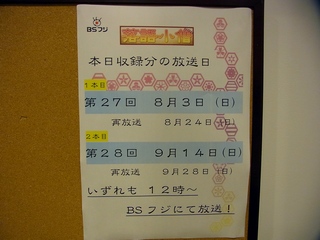 BSフジ
落語小僧
本日収録分の放送日
1本目
第27回 8月3日(日)
再放送 8月24日(日)
2本目
第28回 9月14日(日)
再放送 9月28日(日)
いずれも 12時～
BSフジにて放送!